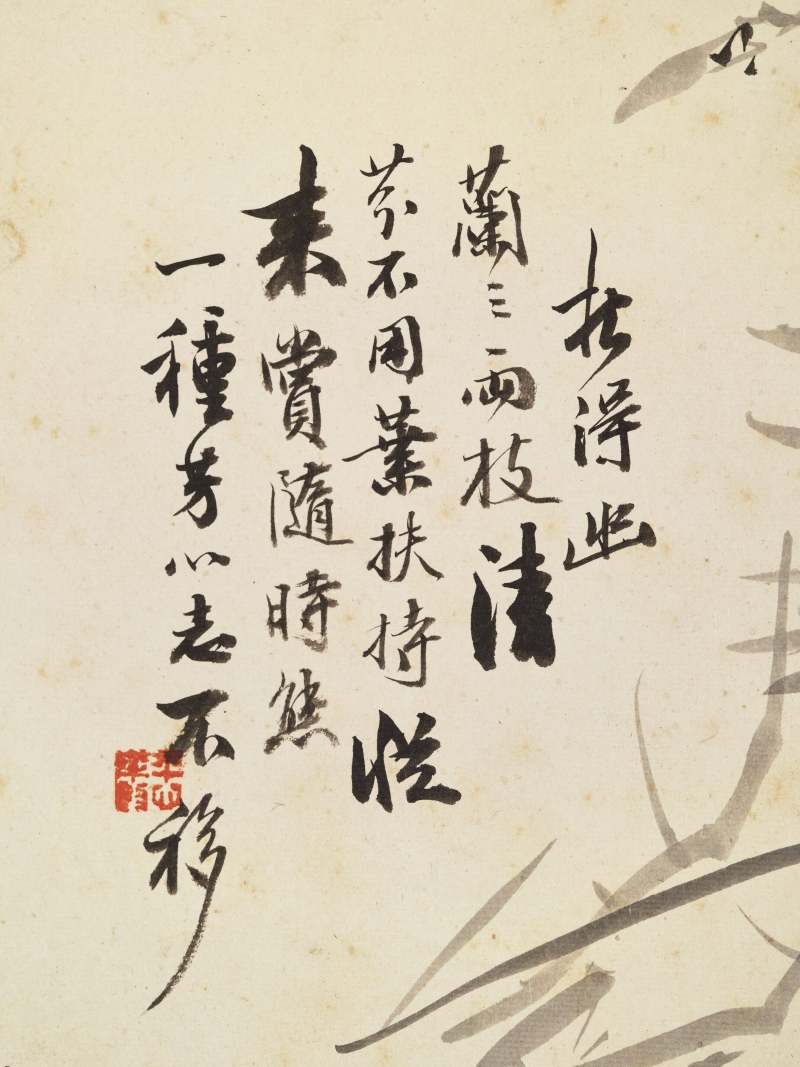 折得幽
蘭三兩枝清
芬不用葉扶持從
来賞隨時態
一種芳心志不移